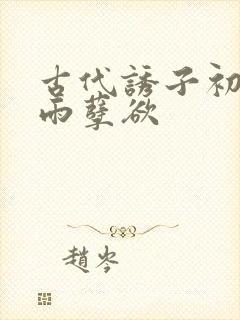 古代誘子初
雨孽欲
趙岑